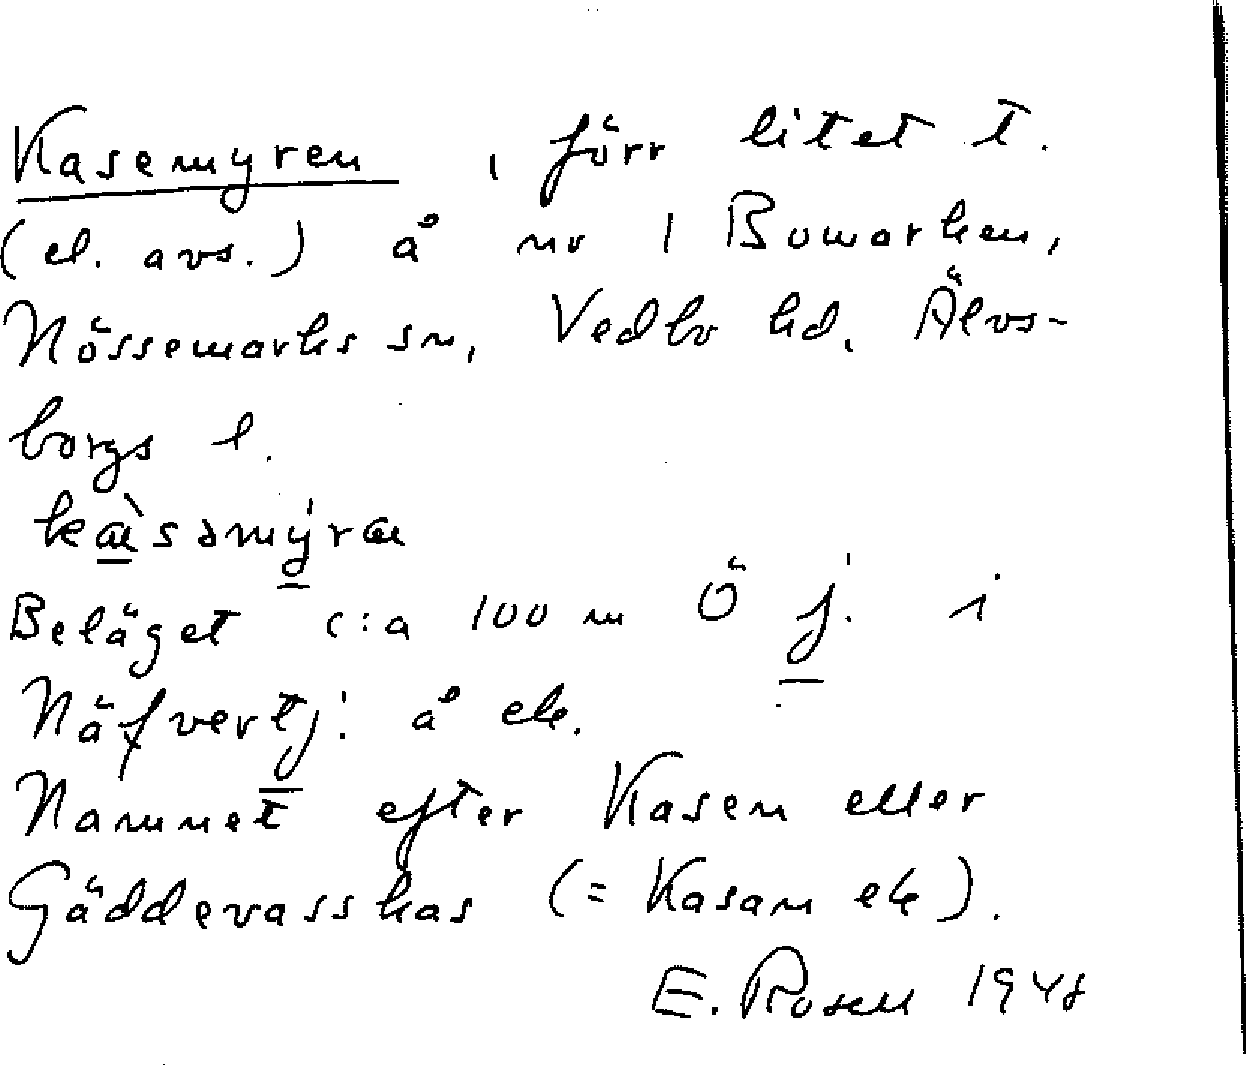 Kasemyren, förr litet t.
(el. avs.) å nr 1 Bowarken,
Nössemarks sn, Vedbo hd, Älvs-
borgs l.
kæ̀sǝmýræ
Beläget c:a 100 m Ö j. i
Näfvertj. å ek.
Namnet efter Kasen eller
Gäddevasskas (= Kasam ek).
E. Rosell 1948